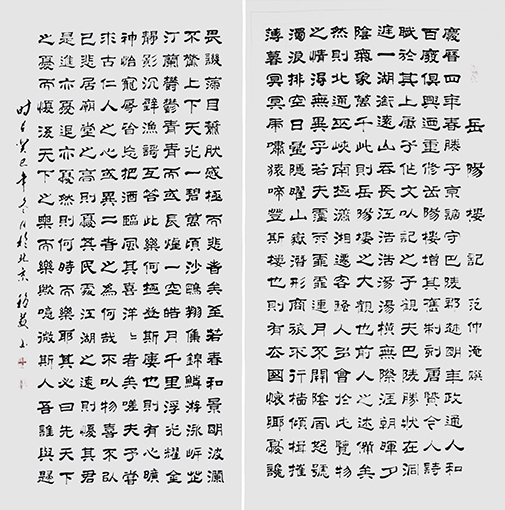 岳陽樓記 范仲淹撰
慶曆四年春滕子京謫守巴陵郡越明年政通人和
百廢俱興迺重修岳陽樓增其舊制刻唐賢今人詩
賦於其上屬予作文以記之予觀夫巴陵勝狀在洞
庭一湖銜遠山吞長江浩浩湯湯橫無際涯朝暉夕
陰氣象萬千此則岳陽樓之大觀也前人之述備矣
然則北通巫峽南極瀟湘遷客騷人多會於此覽物
之情得無異乎若夫霪雨霏霏連月不開陰風怒號
濁浪排空日星隱曜山嶽潛形商旅不行檣傾楫摧
薄暮冥冥虎嘯猿啼登斯樓也則有去國懷鄉憂讒
畏譏滿目蕭然感極而悲者矣至若春和景明波瀾
不驚上下天光一碧萬頃沙鷗翔集錦鱗游泳岸芷
汀蘭鬱鬱青青而或長煙一空皓月千里浮光耀金
靜影沉璧漁謌互答此樂何極登斯樓也則有心曠
神怡寵辱皆忘把酒臨風其喜洋洋者矣嗟夫予嘗
求古仁人之心或異二者之為何哉不以物喜不以
己悲居廟堂之高則憂其民處江湖之遠則憂其君
是進亦憂退亦憂然則何時而樂耶其必曰先天下
之憂而憂後天下之樂而樂歟噫微斯人吾誰與歸
時在癸巳年冬月於北京